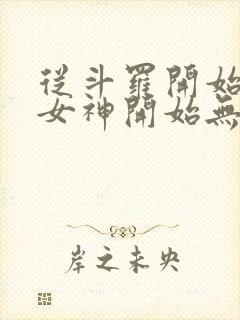 從斗羅開始
女神開始無
岸之未央